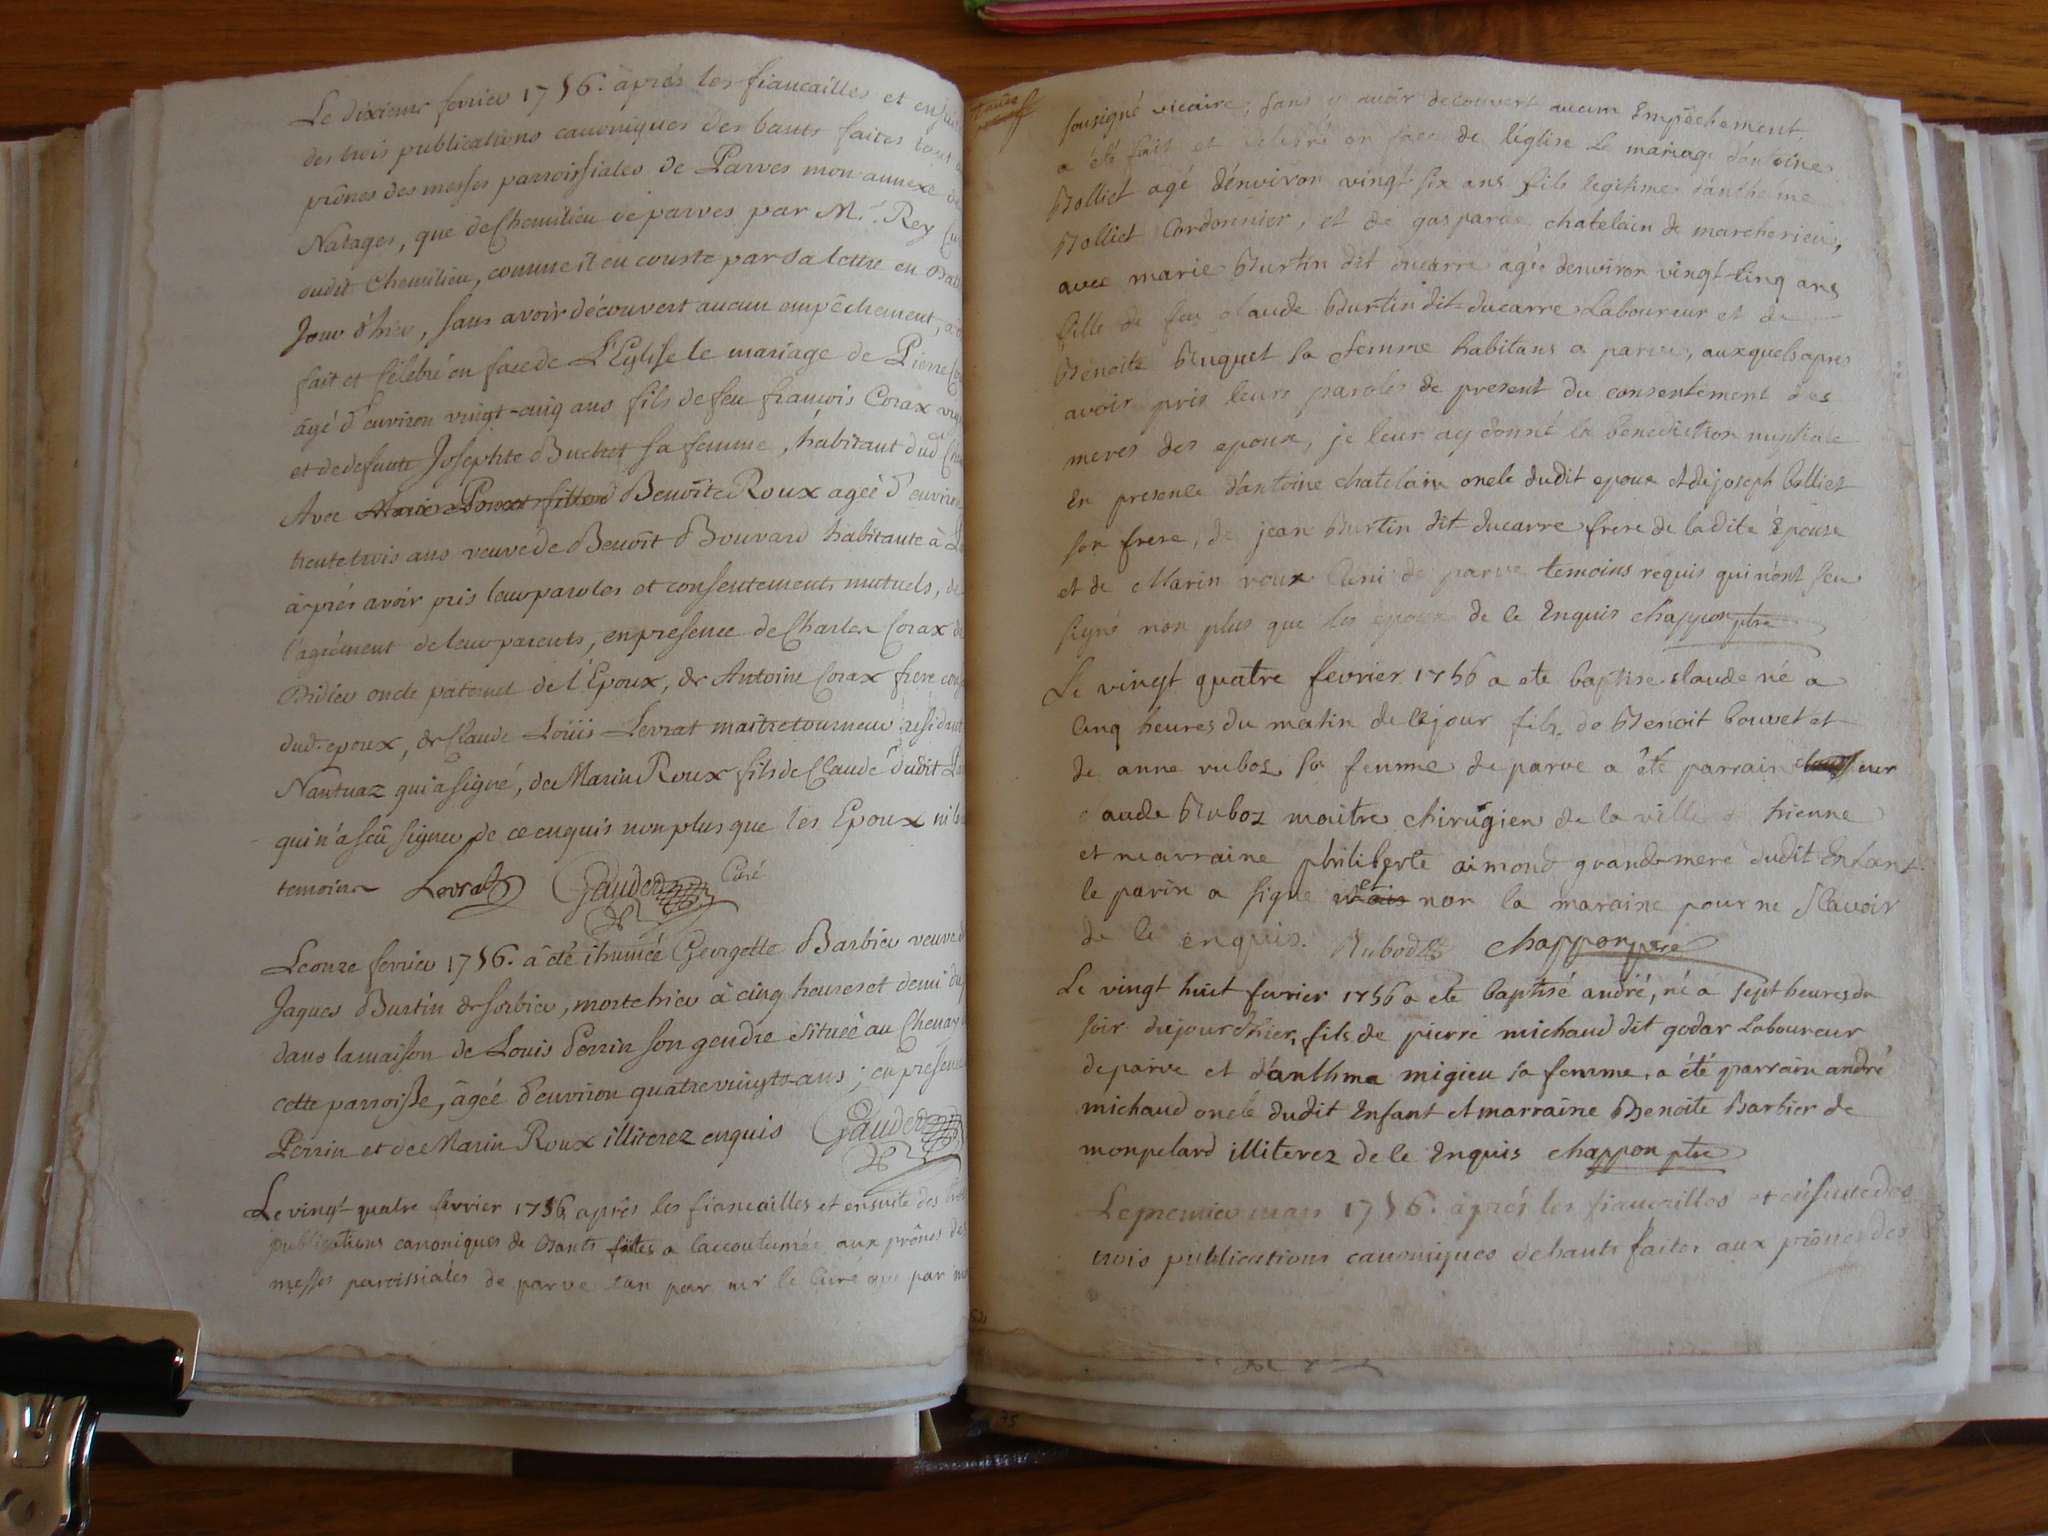 Le dixieme fevrier 1756. àprés les fiancailles et ensui
des trois publications canoniques des bants faites tant a
prônes des messes parroissiales de Parves mon annexe de
Natages, que de Chemilieu de parves par Mr. Rey Cu
dudit Chemilieu, comme il en conste par sa lettre en
Jour d'hier, sans avoir découvert aucun empêchement, a
fait et célébré en face de L'Eglise le mariage de Pierre Co
âgé d'environ vingt-cinq ans fils de feu françois Corax
et de defunte Josephte Buchet sa femme, habitant dud
Avec Marie Poncet fille Benoîte Roux agée d'environ
trente trois ans veuve de Benoît Bouvard habitante à
àprés avoir pris leur paroles et consentements mutuels, de
l'agrément de leur parents, en presence de Charles Corax
oncle paternel de l'Epoux, de Antoine Corax frere
dud. epoux, de Claude Loüis Levrat maitre tourneur residant
Nantuaz qui a signé, de Marin Roux fils de Claude dudit
qui n'a sçû signer de ce enquis non plus que les Epoux ni les
temoins Levrat Gauder Curé
Le onze fevrier 1756. â été ihumée Georgette Barbier veuve d
Jaques Burtin de sorbier, morte hier à cinq heures et demi du
dans la maison de Louis Perrin son gendre située au Chenay
cette parroisse, âgée d'environ quatre vingts ans; en presence
Perrin et de Marin Roux illiterez enquis Gauder
Le vingt quatre fevrier 1756 aprés les fiancailles et ensuite des
publications canoniques de bants faites a laccoutumée aux prônes des
messes paroissiales de parve tan par mr le Curé que par moi
sousigné vicaire, sans y avoir decouvert aucun Empêchement,
a été fait et celebré en face de l'église Le mariage d'antoine
Bolliet agé d'environ vingt six ans fils legitime d'antheme
Bolliet Cordonnier, et de gasparde chatelain de marcherieu,
avec marie Burtin dit ducarre agée denviron vingt cinq ans
fille de feu claude Burtin dit ducarre Laboureur et de
Benoite Buquet sa femme habitans a parve, auxquels apres
avoir pris leurs paroles de present du consentement des
meres des epoux, je leur ay donné la benediction nuptiale
En presence d'antoine chatelain oncle dudit epoux et de joseph Bolliet
son frere, de jean Burtin dit ducarre frere de ladite Epouse
et de Marin roux de parve temoins requis qui n'ont sçu
signé non plus que les epoux de ce Enquis chappon ptre
Le vingt quatre fevrier 1756 a ete baptise claude né a
cinq heures du matin de ce jour fils de Benoit bouvet et
de anne ruboz sa femme de parve a été parrain sieur
claude Ruboz maitre chirugien de la ville de
et marraine philiberte aimond grandmere dudit Enfant
le parin a signé et non la maraine pour ne sçavoir
de ce enquis. Rubod chappon ptre
Le vingt huit fevrier 1756 a ete baptisé andré, né a sept heures du
soir dujourdhier, fils de pierre michaud dit godar Laboureur
de parve et d'anthma migieu sa femme, a été parrain andré
michaud oncle dudit Enfant et marraine Benoite Barbier de
monpelard illiterez de ce Enquis chappon ptre
Le premier mars 1756. àprés les fiancailles et ensuite des
trois publications canoniques de bants faites aux prônes des